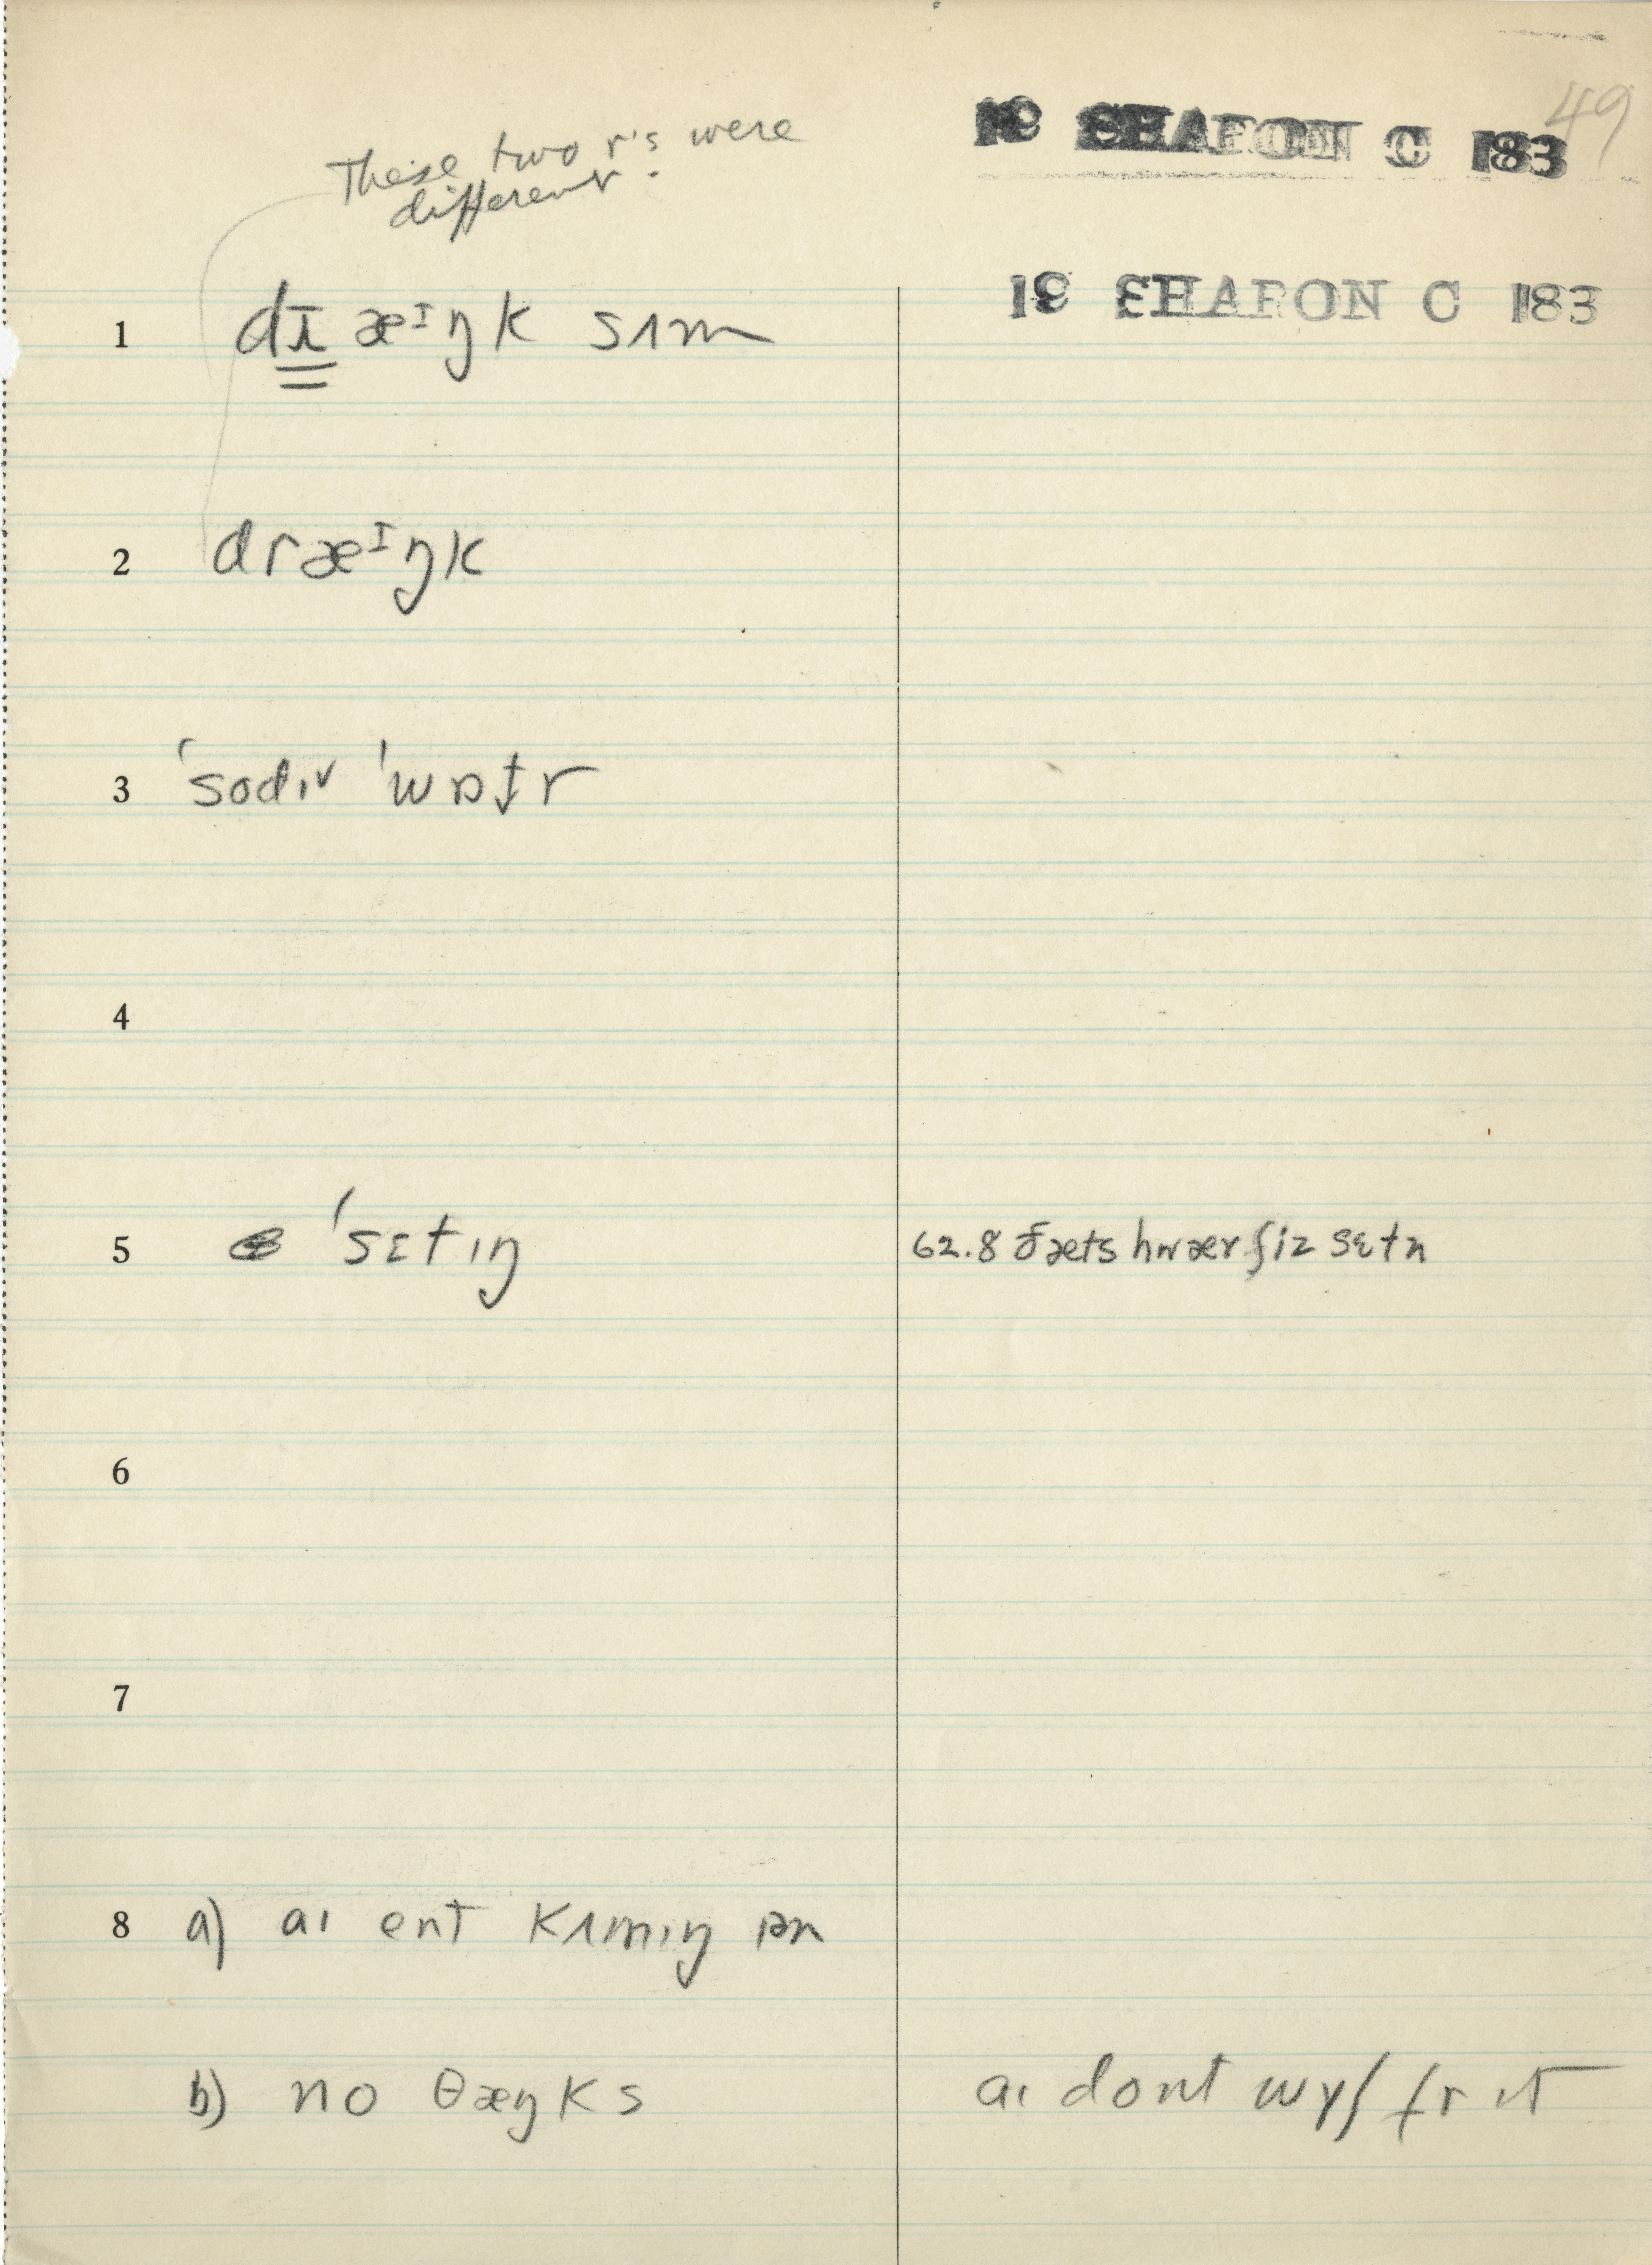 49
19 SHARON C 183
These two r's were
different.
19 SHARON C 183
1 dɹæᶦŋk sʌm
2 dræᶦŋk
3 ˈsodɪv ˈwɒt̬r
4
5 ˈsɛtɪŋ 62.8 ðæts hwær ʃiz sɛtn
6
7
8 a) aɪ ent kʌmɪŋ ɒn
b) no θæŋks aɪ dont wɪʃ fr ɪt